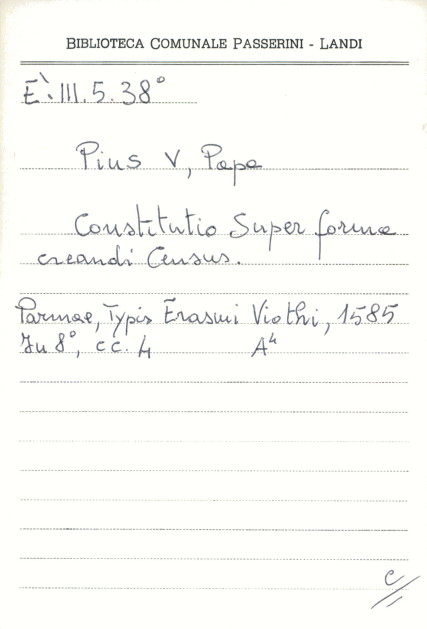 BIBLIOTECA COMUNALE PASSERINI - LANDI
E`.III.5.38°
Pius V, Papa
Constitutio Super forma
creandi Census.
Parmae, Typis Erasmi Viothi, 1585
In 8°, cc. 4 A⁴
C